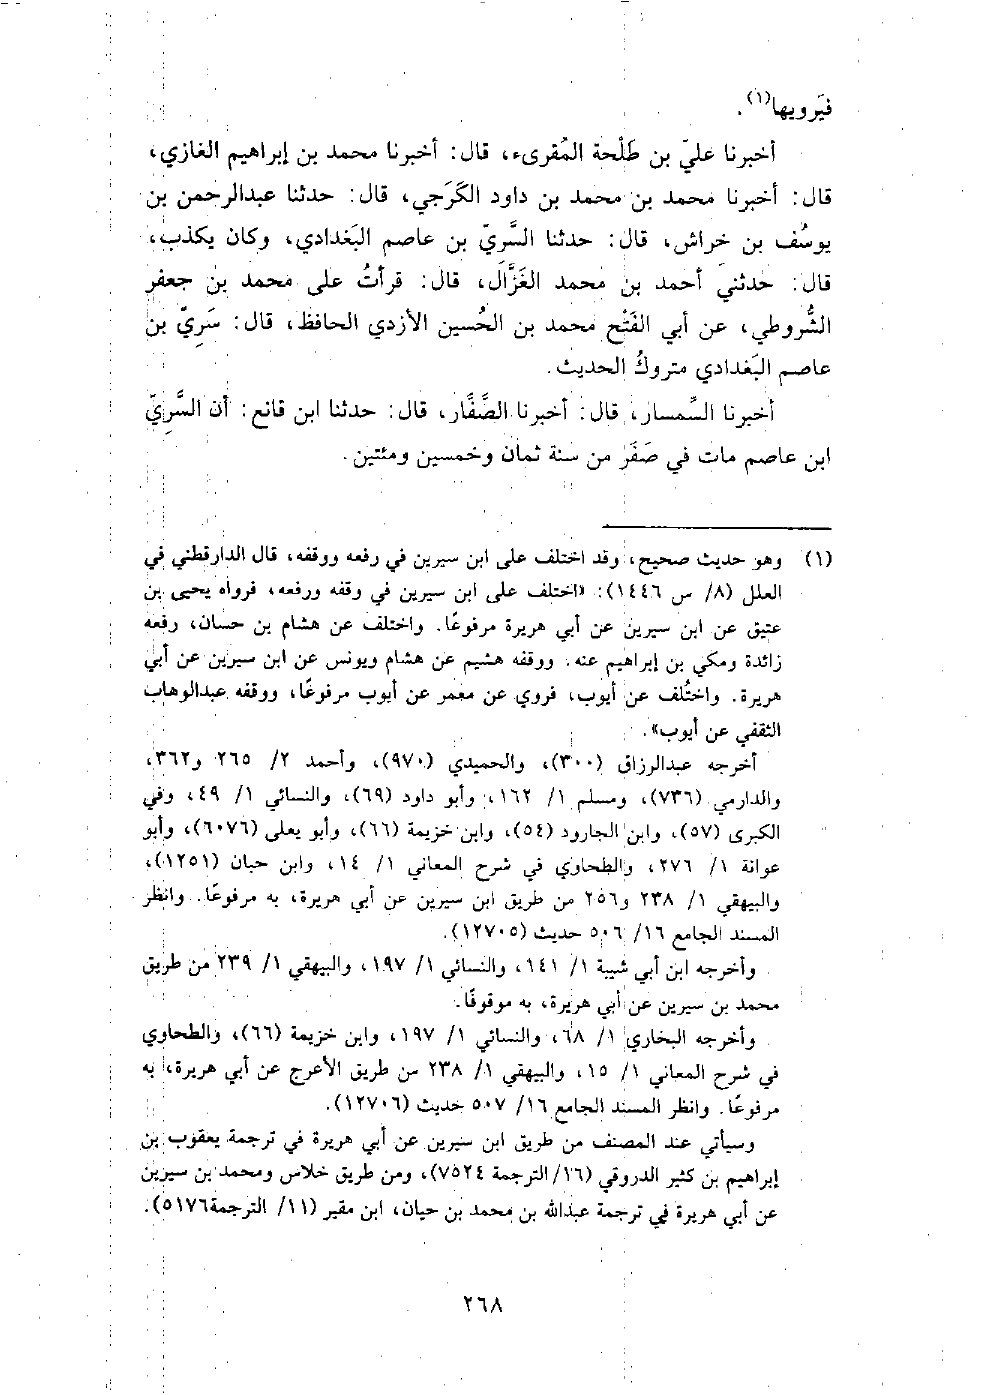 فيَرويها(١).
أخبرنا عليّ بن طَلْحة المُقرىء، قال: أخبرنا محمد بن إبراهيم الغازي،
قال: أخبرنا محمد بن محمد بن داود الكَرَجي، قال: حدثنا عبدالرحمن بن
يوسُف بن خِراش، قال: حدثنا السَّريّ بن عاصم البَغدادي، وكان يكذب،
قال: حدثني أحمد بن محمد الغَزَّال، قال: قرأتُ على محمد بن جعفر
الشُّروطي، عن أبي الفَتْح محمد بن الحُسين الأزدي الحافظ، قال: سَريّ بن
عاصم البَغدادي متروكُ الحديث.
أخبرنا السِّمسار، قال: أخبرنا الصَّفَّار، قال: حدثنا ابن قانع: أن السَّرِيّ
ابن عاصم مات في صَفَر من سنة ثمان وخمسين ومئتين.
(١) وهو حديث صحيح، وقد اختلف على ابن سيرين في رفعه ووقفه، قال الدارقطني في
العلل (٨/ س ١٤٤٦): «اختلف على ابن سيرين في وقفه ورفعه، فرواه يحيى بن
عتيق عن ابن سيرين عن أبي هريرة مرفوعًا. واختلف عن هشام بن حسان، رفعه
زائدة ومكي بن إبراهيم عنه. ووقفه هشيم عن هشام ويونس عن ابن سيرين عن أبي
هريرة. واختُلف عن أيوب، فروي عن معمر عن أيوب مرفوعًا، ووقفه عبدالوهاب
الثقفي عن أيوب».
أخرجه عبدالرزاق (٣٠٠)، والحميدي (٩٧٠)، وأحمد ٢/ ٢٦٥ و٣٦٢،
والدارمي (٧٣٦)، ومسلم ١/ ١٦٢، وأبو داود (٦٩)، والنسائي ١/ ٤٩، وفي
الكبرى (٥٧)، وابن الجارود (٥٤)، وابن خزيمة (٦٦)، وأبو يعلى (٦٠٧٦)، وأبو
عوانة ١/ ٢٧٦، والطحاوي في شرح المعاني ١/ ١٤، وابن حبان (١٢٥١)،
والبيهقي ١/ ٢٣٨ و٢٥٦ من طريق ابن سيرين عن أبي هريرة، به مرفوعًا. وانظر
المسند الجامع ١٦/ ٥٠٦ حديث (١٢٧٠٥).
وأخرجه ابن أبي شيبة ١/ ١٤١، والنسائي ١/ ١٩٧، والبيهقي ١/ ٢٣٩ من طريق
محمد بن سيرين عن أبي هريرة، به موقوفًا.
وأخرجه البخاري ١/ ٦٨، والنسائي ١/ ١٩٧، وابن خزيمة (٦٦)، والطحاوي
في شرح المعاني ١/ ١٥، والبيهقي ١/ ٢٣٨ من طريق الأعرج عن أبي هريرة، به
مرفوعًا. وانظر المسند الجامع ١٦/ ٥٠٧ حديث (١٢٧٠٦).
وسيأتي عند المصنف من طريق ابن سيرين عن أبي هريرة في ترجمة يعقوب بن
إبراهيم بن كثير الدروقي (١٦/ الترجمة ٧٥٢٤)، ومن طريق خلاس ومحمد بن سيرين
عن أبي هريرة في ترجمة عبدالله بن محمد بن حيان، ابن مقير (١١/ الترجمة٥١٧٦).
٢٦٨